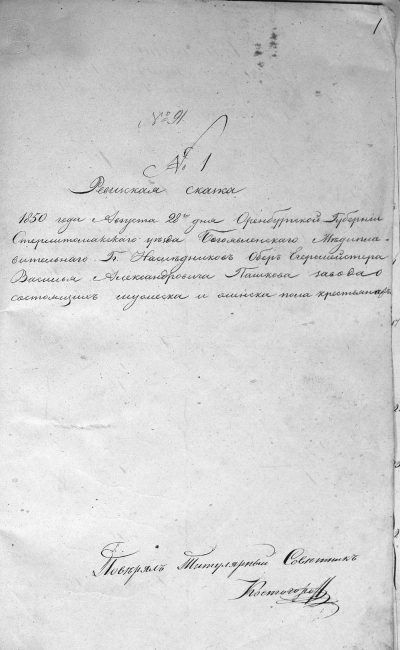 1
№ 91
№ 1
Ревижская скажа
1850 года Августа 28го дня Оренбургской Губернии
Стерлитамакскаго уезда Богоявленскаго Медипла-
вительнаго Г. Наследниковъ Оберъ Егермейстера
Василья Александровича Пашкова завода о
состоящихъ мужеска и женска пола крестьянахъ
Поверялъ Титулярный Советникъ